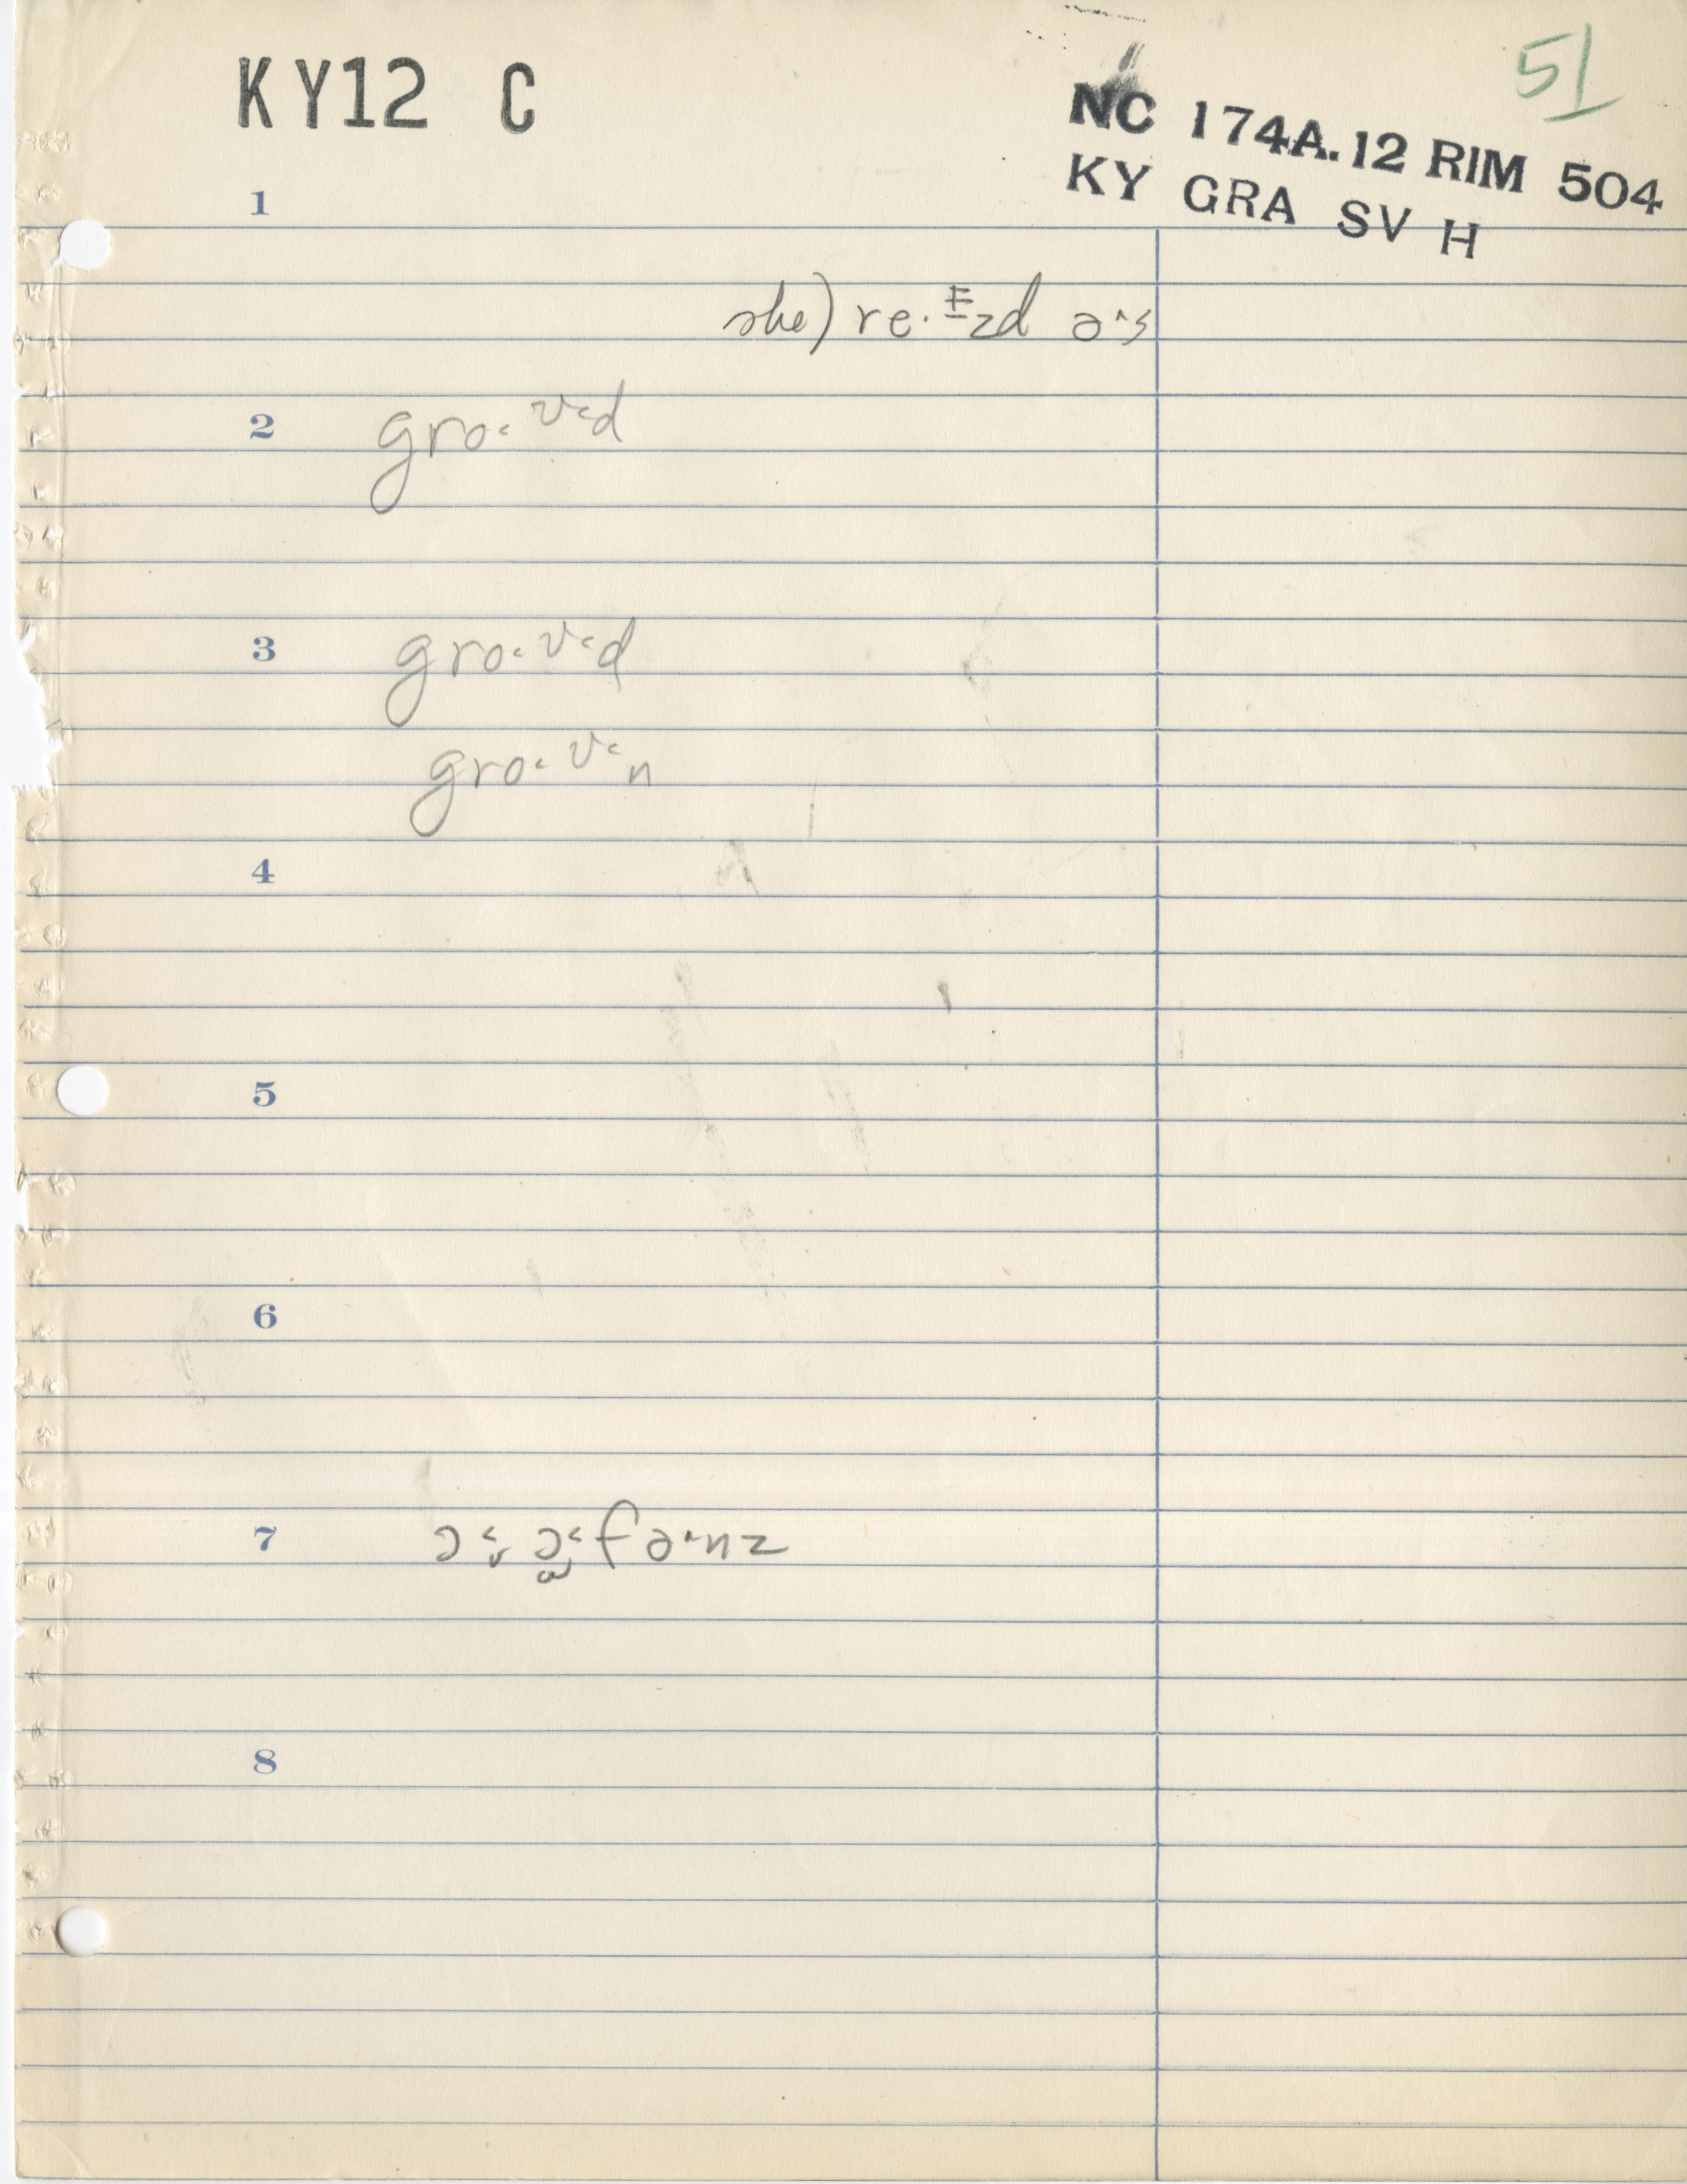 KY12 C
51
NC 174A.12 RIM 504
KY GRA SV H
1
she) re·ɨzd əˑs
2 gro·ᵛ<d
3 gro·ᵛ<d
gro·ᵛ<n
4
5
6
7 ɔ·ɚ ɔ·f ə·nz
8